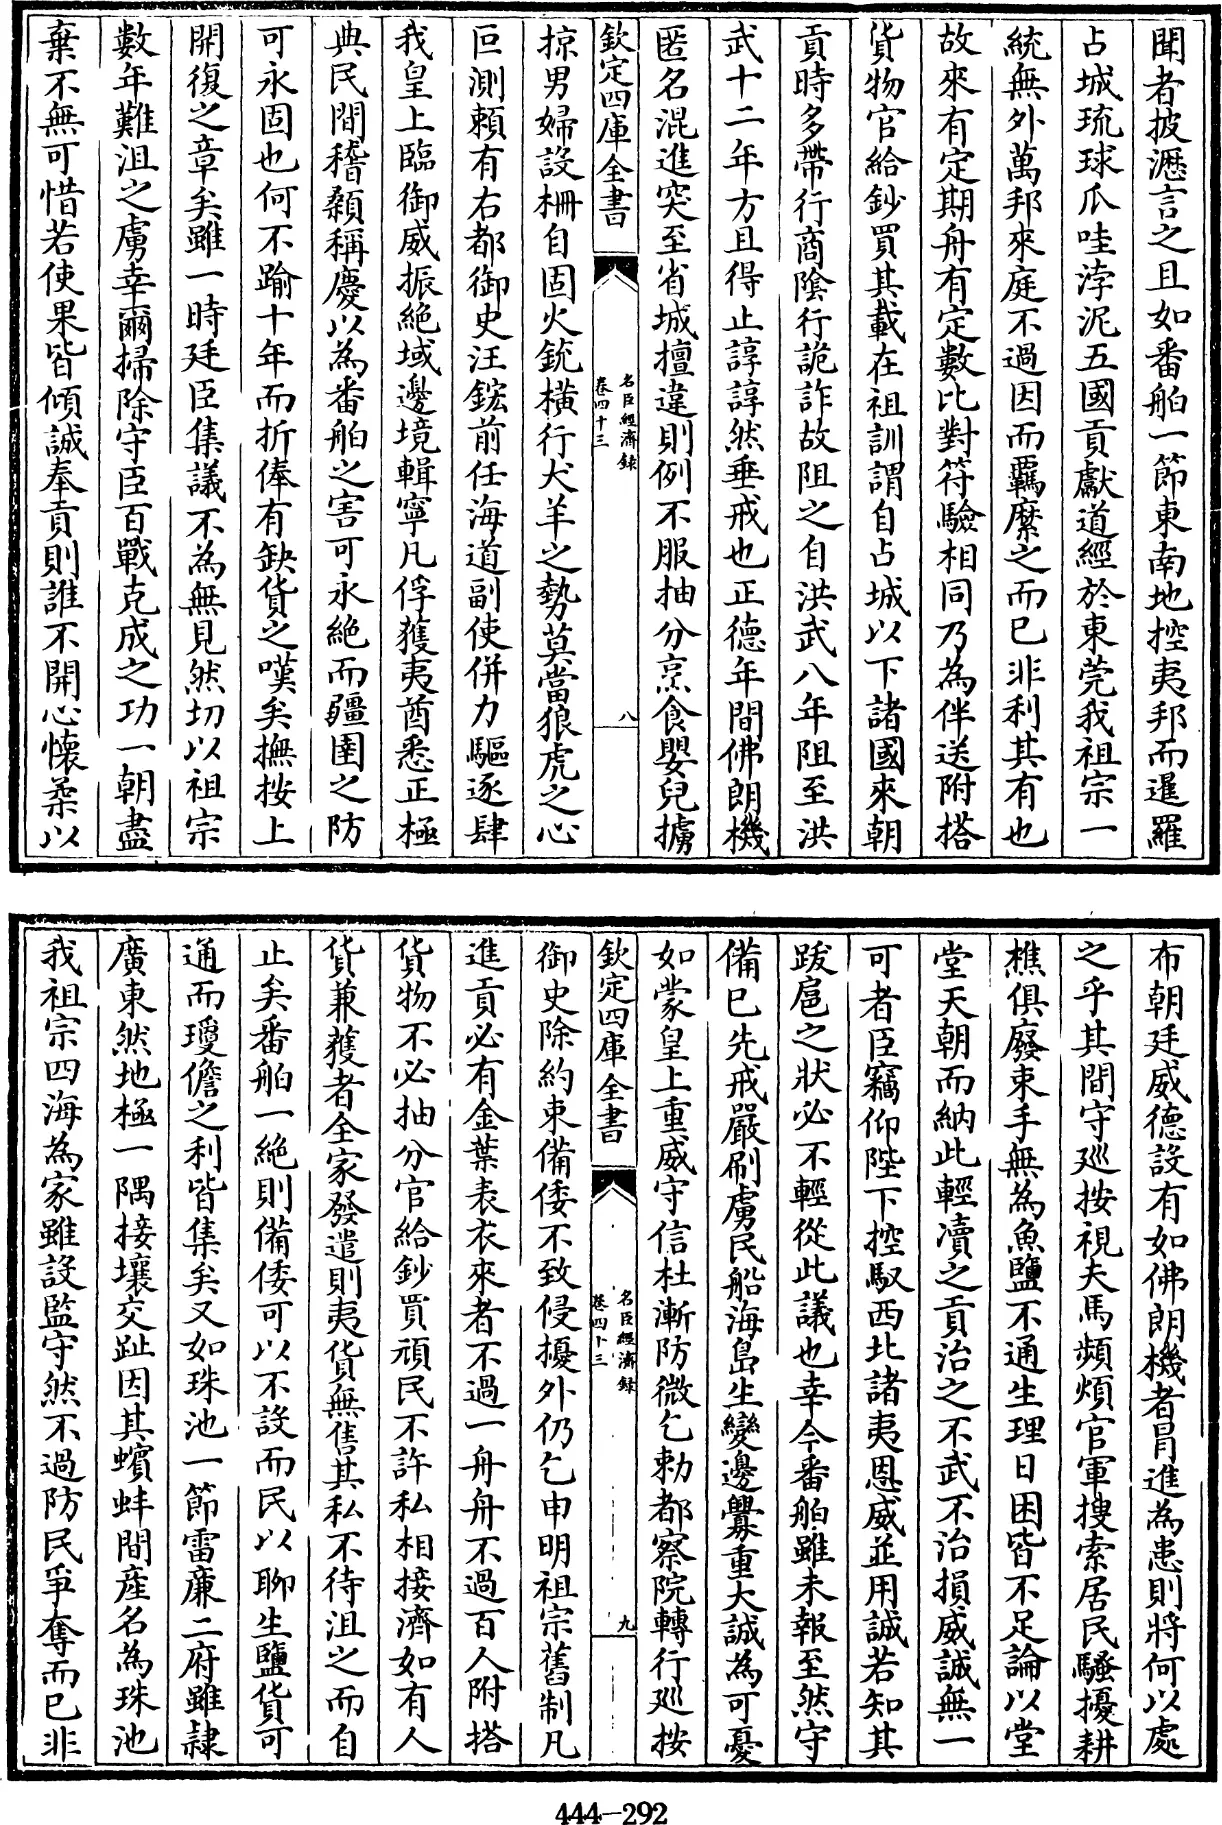 聞者披瀝言之且如番舶一節東南地控夷邦而暹羅
占城琉球爪哇浡泥五國貢獻道經於東莞我祖宗一
統無外萬邦來庭不過因而羈縻之而已非利其有也
故來有定期舟有定數比對符驗相同乃為伴送附搭
貨物官給鈔買其載在祖訓謂自占城以下諸國來朝
貢時多帶行商陰行詭詐故阻之自洪武八年阻至洪
武十二年方且得止諄諄然垂戒也正德年間佛朗機
匿名混進突至省城擅違則例不服抽分烹食嬰兒擄
欽定四庫全書
名臣經濟録
卷四十三
八
掠男婦設柵自固火銃橫行犬羊之勢莫當狼虎之心
叵測賴有右都御史汪鋐前任海道副使併力驅逐肆
我皇上臨御威振絕域邊境輯寧凡俘獲夷酋悉正極
典民間稽顙稱慶以為番舶之害可永絕而疆圉之防
可永固也何不踰十年而折俸有缺貨之嘆矣撫按上
開復之章矣雖一時廷臣集議不為無見然切以祖宗
數年難沮之虜幸爾掃除守臣百戰克成之功一朝盡
棄不無可惜若使果皆傾誠奉貢則誰不開心懷柔以
布朝廷威德設有如佛朗機者冒進為患則將何以處
之乎其間守廵按視夫馬頻煩官軍搜索居民騷擾耕
樵俱廢束手無為魚鹽不通生理日困皆不足論以堂
堂天朝而納此輕凟之貢治之不武不治損威誠無一
可者臣竊仰陛下控馭西北諸夷恩威並用誠若知其
跋扈之狀必不輕從此議也幸今番舶雖未報至然守
備已先戒嚴刷虜民船海島生變邊釁重大誠為可憂
如蒙皇上重威守信杜漸防微乞勅都察院轉行廵按
欽定四庫全書
名臣經濟録
卷四十三
九
御史除約束備倭不致侵擾外仍乞申明祖宗舊制凡
進貢必有金葉表衣來者不過一舟舟不過百人附搭
貨物不必抽分官給鈔買頑民不許私相接濟如有人
貨兼獲者全家發遣則夷貨無售其私不待沮之而自
止矣番舶一絕則備倭可以不設而民以聊生鹽貨可
通而瓊儋之利皆集矣又如珠池一節雷廉二府雖隷
廣東然地極一隅接壤交趾因其蠙蚌間産名為珠池
我祖宗四海為家雖設監守然不過防民爭奪而已非
444-292